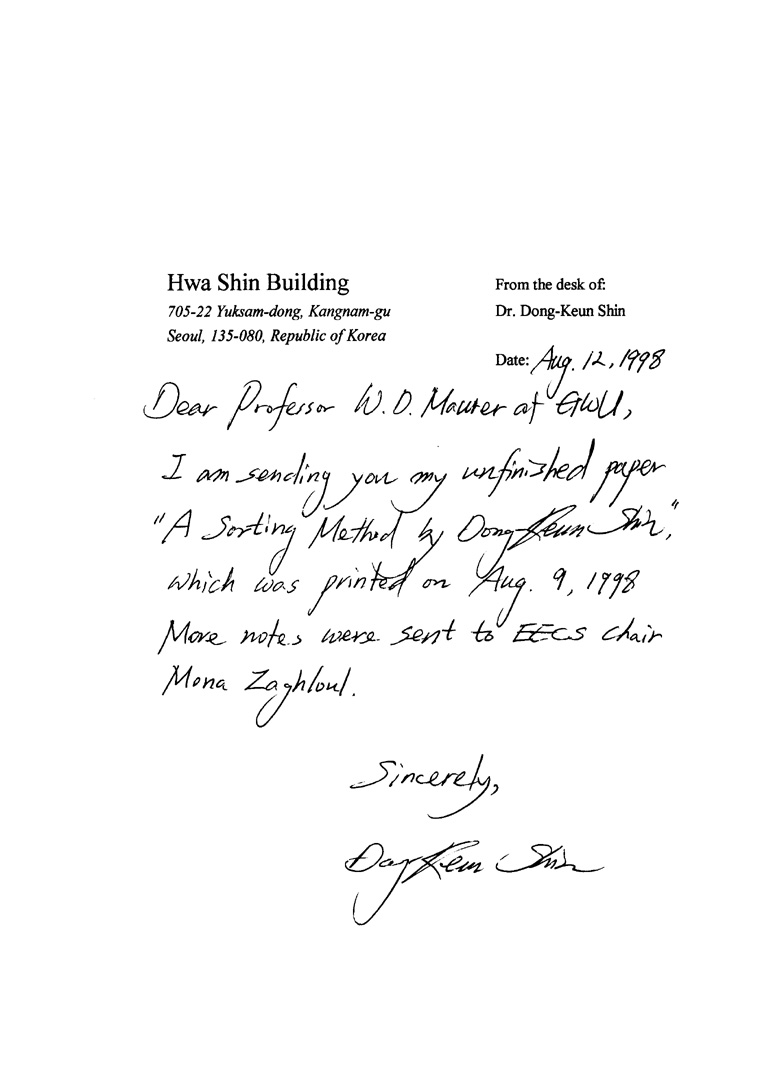 Hwa Shin Building
705-22 Yuksam-dong, Kangnam-gu
Seoul, 135-080, Republic of Korea
From the desk of:
Dr. Dong-Keun Shin
Date: Aug. 12, 1998
Dear Professor W. D. Maurer at GWU,
I am sending you my unfinished paper
"A Sorting Method by Dong-Keun Shin",
which was printed on Aug. 9, 1998
More notes were sent to EECS chair
Mona Zaghloul.
Sincerely,
Dong Keun Shin